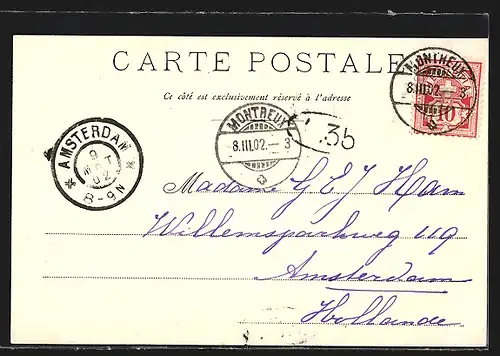 CARTE POSTALE
Ce côté est exclusivement réservé à l'adresse
MONTREUX
8.III.02.— 3
10
MONTREUX
8.III.02.— 3
35
AMSTERDAM
9
MRT
02
8-9N
Madame G E J Ham
Willemsparkweg 119
Amsterdam
Hollande